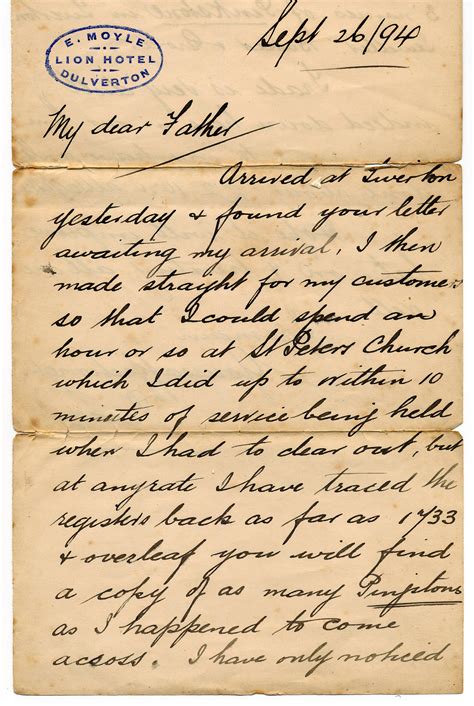 E. MOYLE
LION HOTEL
DULVERTON
Sept 26/94
My dear Father
Arrived at Tiverton
yesterday & found your letter
awaiting my arrival, I then
made straight for my customers
so that I could spend an
hour or so at St Peters Church
which I did up to within 10
minutes of service being held
when I had to clear out, but
at anyrate I have traced the
registers back as far as 1733
& overleaf you will find
a copy of as many Pingstone
as I happened to come
across. I have only noticed